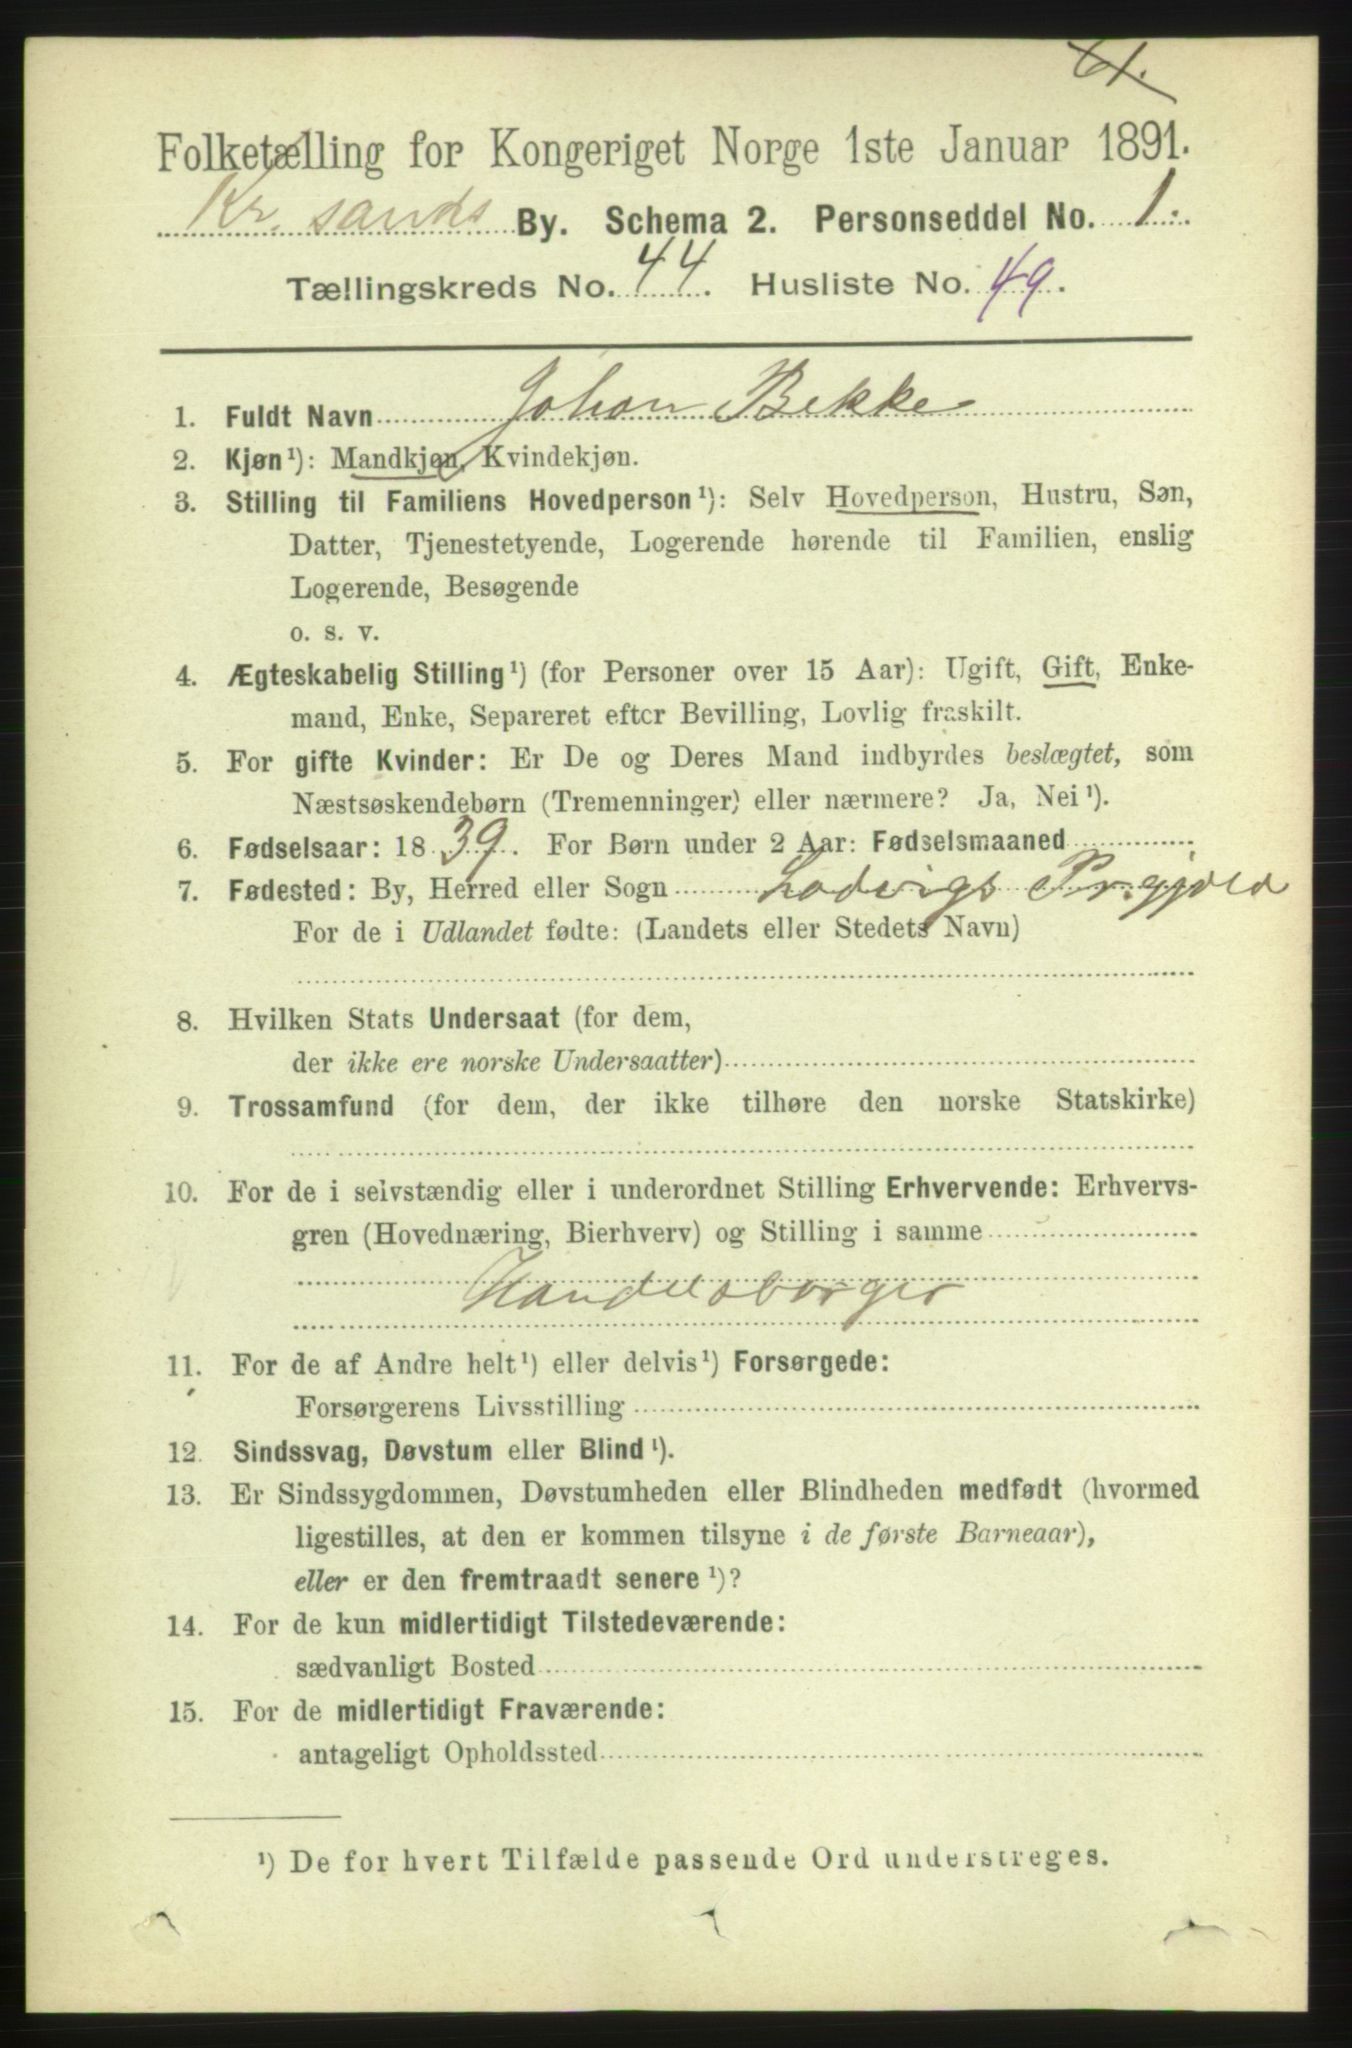 61.
Folketælling for Kongeriget Norge 1ste Januar 1891.
Kr. sands By. Schema 2. Personseddel No. 1.
Tællingskreds No. 44. Husliste No. 49.
1. Fuldt Navn Johan Bekke
2. Kjøn¹): Mandkjøn, Kvindekjøn.
3. Stilling til Familiens Hovedperson¹): Selv Hovedperson, Hustru, Søn,
Datter, Tjenestetyende, Logerende hørende til Familien, enslig
Logerende, Besøgende
o. s. v.
4. Ægteskabelig Stilling¹) (for Personer over 15 Aar): Ugift, Gift, Enke-
mand, Enke, Separeret efter Bevilling, Lovlig fraskilt.
5. For gifte Kvinder: Er De og Deres Mand indbyrdes beslægtet, som
Næstsøskendebørn (Tremenninger) eller nærmere? Ja, Nei¹).
6. Fødselsaar: 1839. For Børn under 2 Aar: Fødselsmaaned
7. Fødested: By, Herred eller Sogn Lodvigs Pr.gjæld
For de i Udlandet fødte: (Landets eller Stedets Navn)
8. Hvilken Stats Undersaat (for dem,
der ikke ere norske Undersaatter)
9. Trossamfund (for dem, der ikke tilhøre den norske Statskirke)
10. For de i selvstændig eller i underordnet Stilling Erhvervende: Erhvervs-
gren (Hovednæring, Bierhverv) og Stilling i samme
Handelsborger
11. For de af Andre helt¹) eller delvis¹) Forsørgede:
Forsørgerens Livsstilling
12. Sindssvag, Døvstum eller Blind¹).
13. Er Sindssygdommen, Døvstumheden eller Blindheden medfødt (hvormed
ligestilles, at den er kommen tilsyne i de første Barneaar),
eller er den fremtraadt senere¹)?
14. For de kun midlertidigt Tilstedeværende:
sædvanligt Bosted
15. For de midlertidigt Fraværende:
antageligt Opholdssted
¹) De for hvert Tilfælde passende Ord understreges.